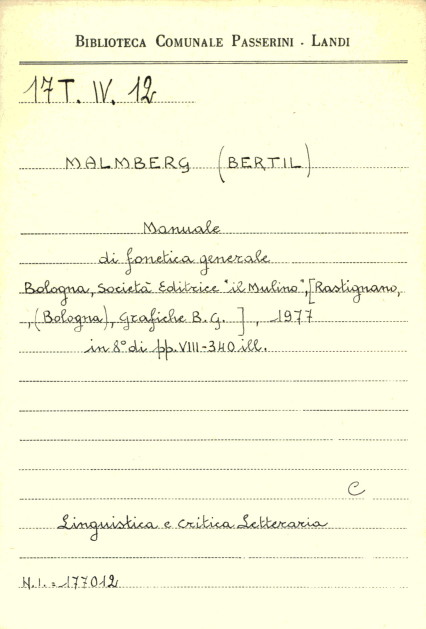 BIBLIOTECA COMUNALE PASSERINI - LANDI
17 T. IV. 12
MALMBERG (BERTIL)
Manuale
di fonetica generale
Bologna, Società Editrice "il Mulino", [Rastignano,
, (Bologna), Grafiche B.G. ] , 1977
in 8° di pp. VIII-340 ill.
C
Linguistica e critica Letteraria
N.I. = 177012